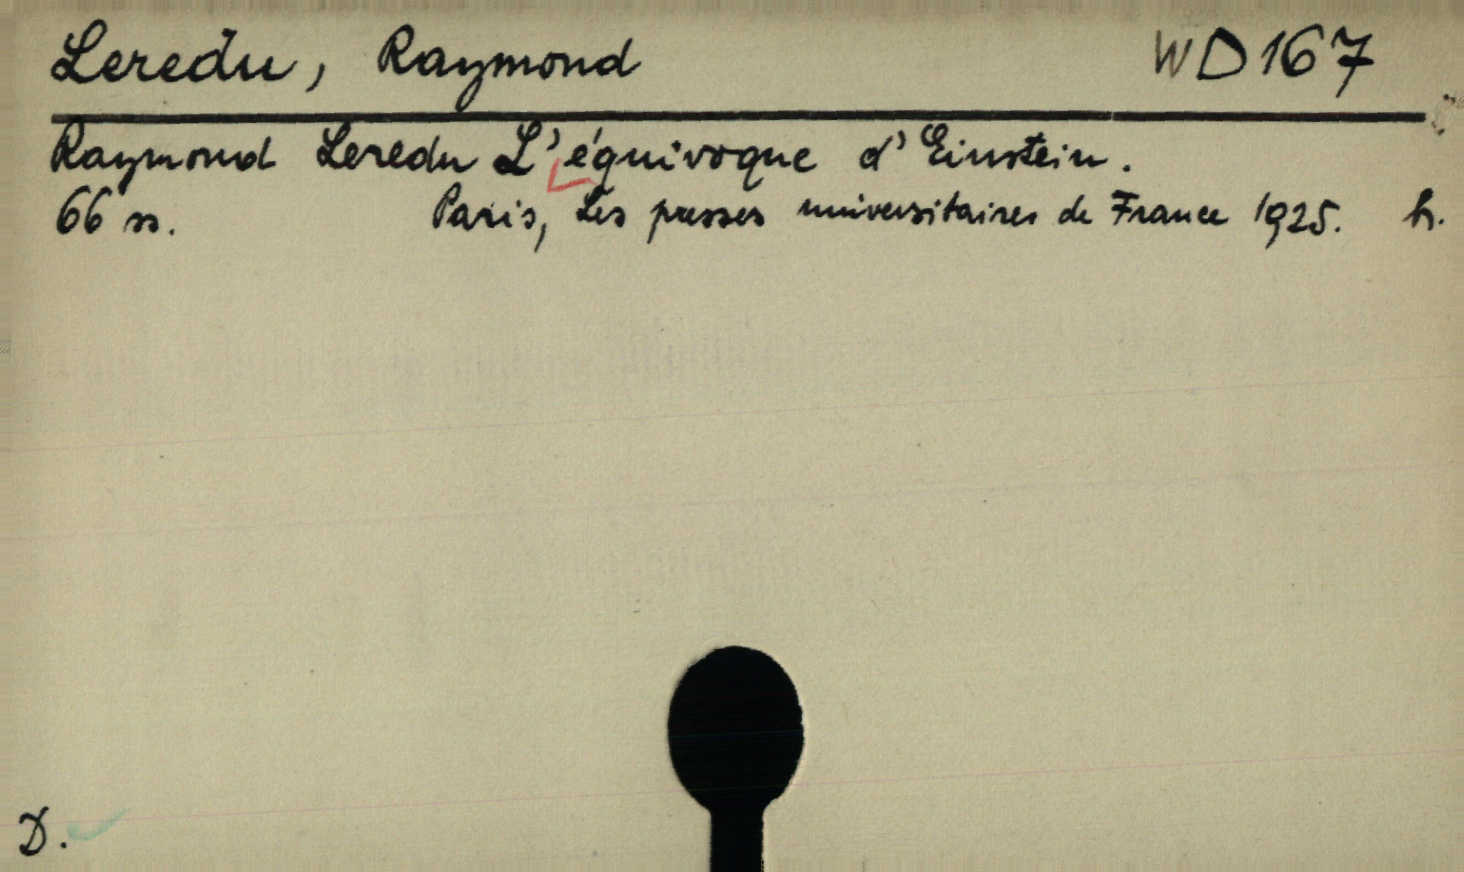 Leredu, Raymond WD 167
Raymond Leredu L'équivoque d'Einstein.
66 ss. Paris, Les presses universitaires de France 1925. h.
D.